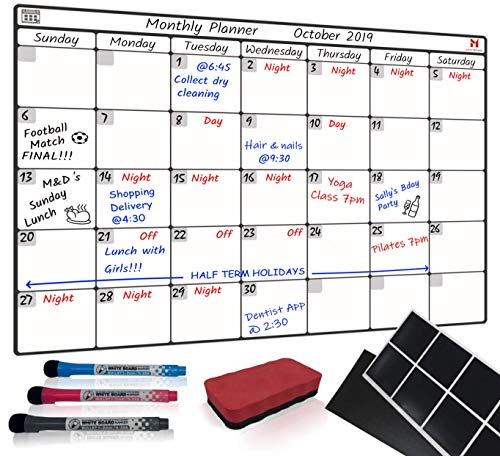 Monthly Planner October 2019
Sunday Monday Tuesday Wednesday Thursday Friday Saturday
1 @6:45
Collect dry
cleaning
2 Night
3 Night
4 Night
5 Night
6
Football
Match
FINAL!!!
7
8 Day
9
Hair & nails
@9:30
10 Day
11
12
13 M&D's
Sunday
Lunch
14 Night
Shopping
Delivery
@4:30
15 Night
16 Night
17 Yoga
Class 7pm
18
Sally's Bday
Party
19
20
21 Off
Lunch with
Girls!!!
22 Off
23 Off
24
25
Pilates 7pm
26
HALF TERM HOLIDAYS
27 Night
28 Night
29 Night
30
Dentist App
@ 2:30
WHITE BOARD MARKER
WHITE BOARD MARKER
WHITE BOARD MARKER